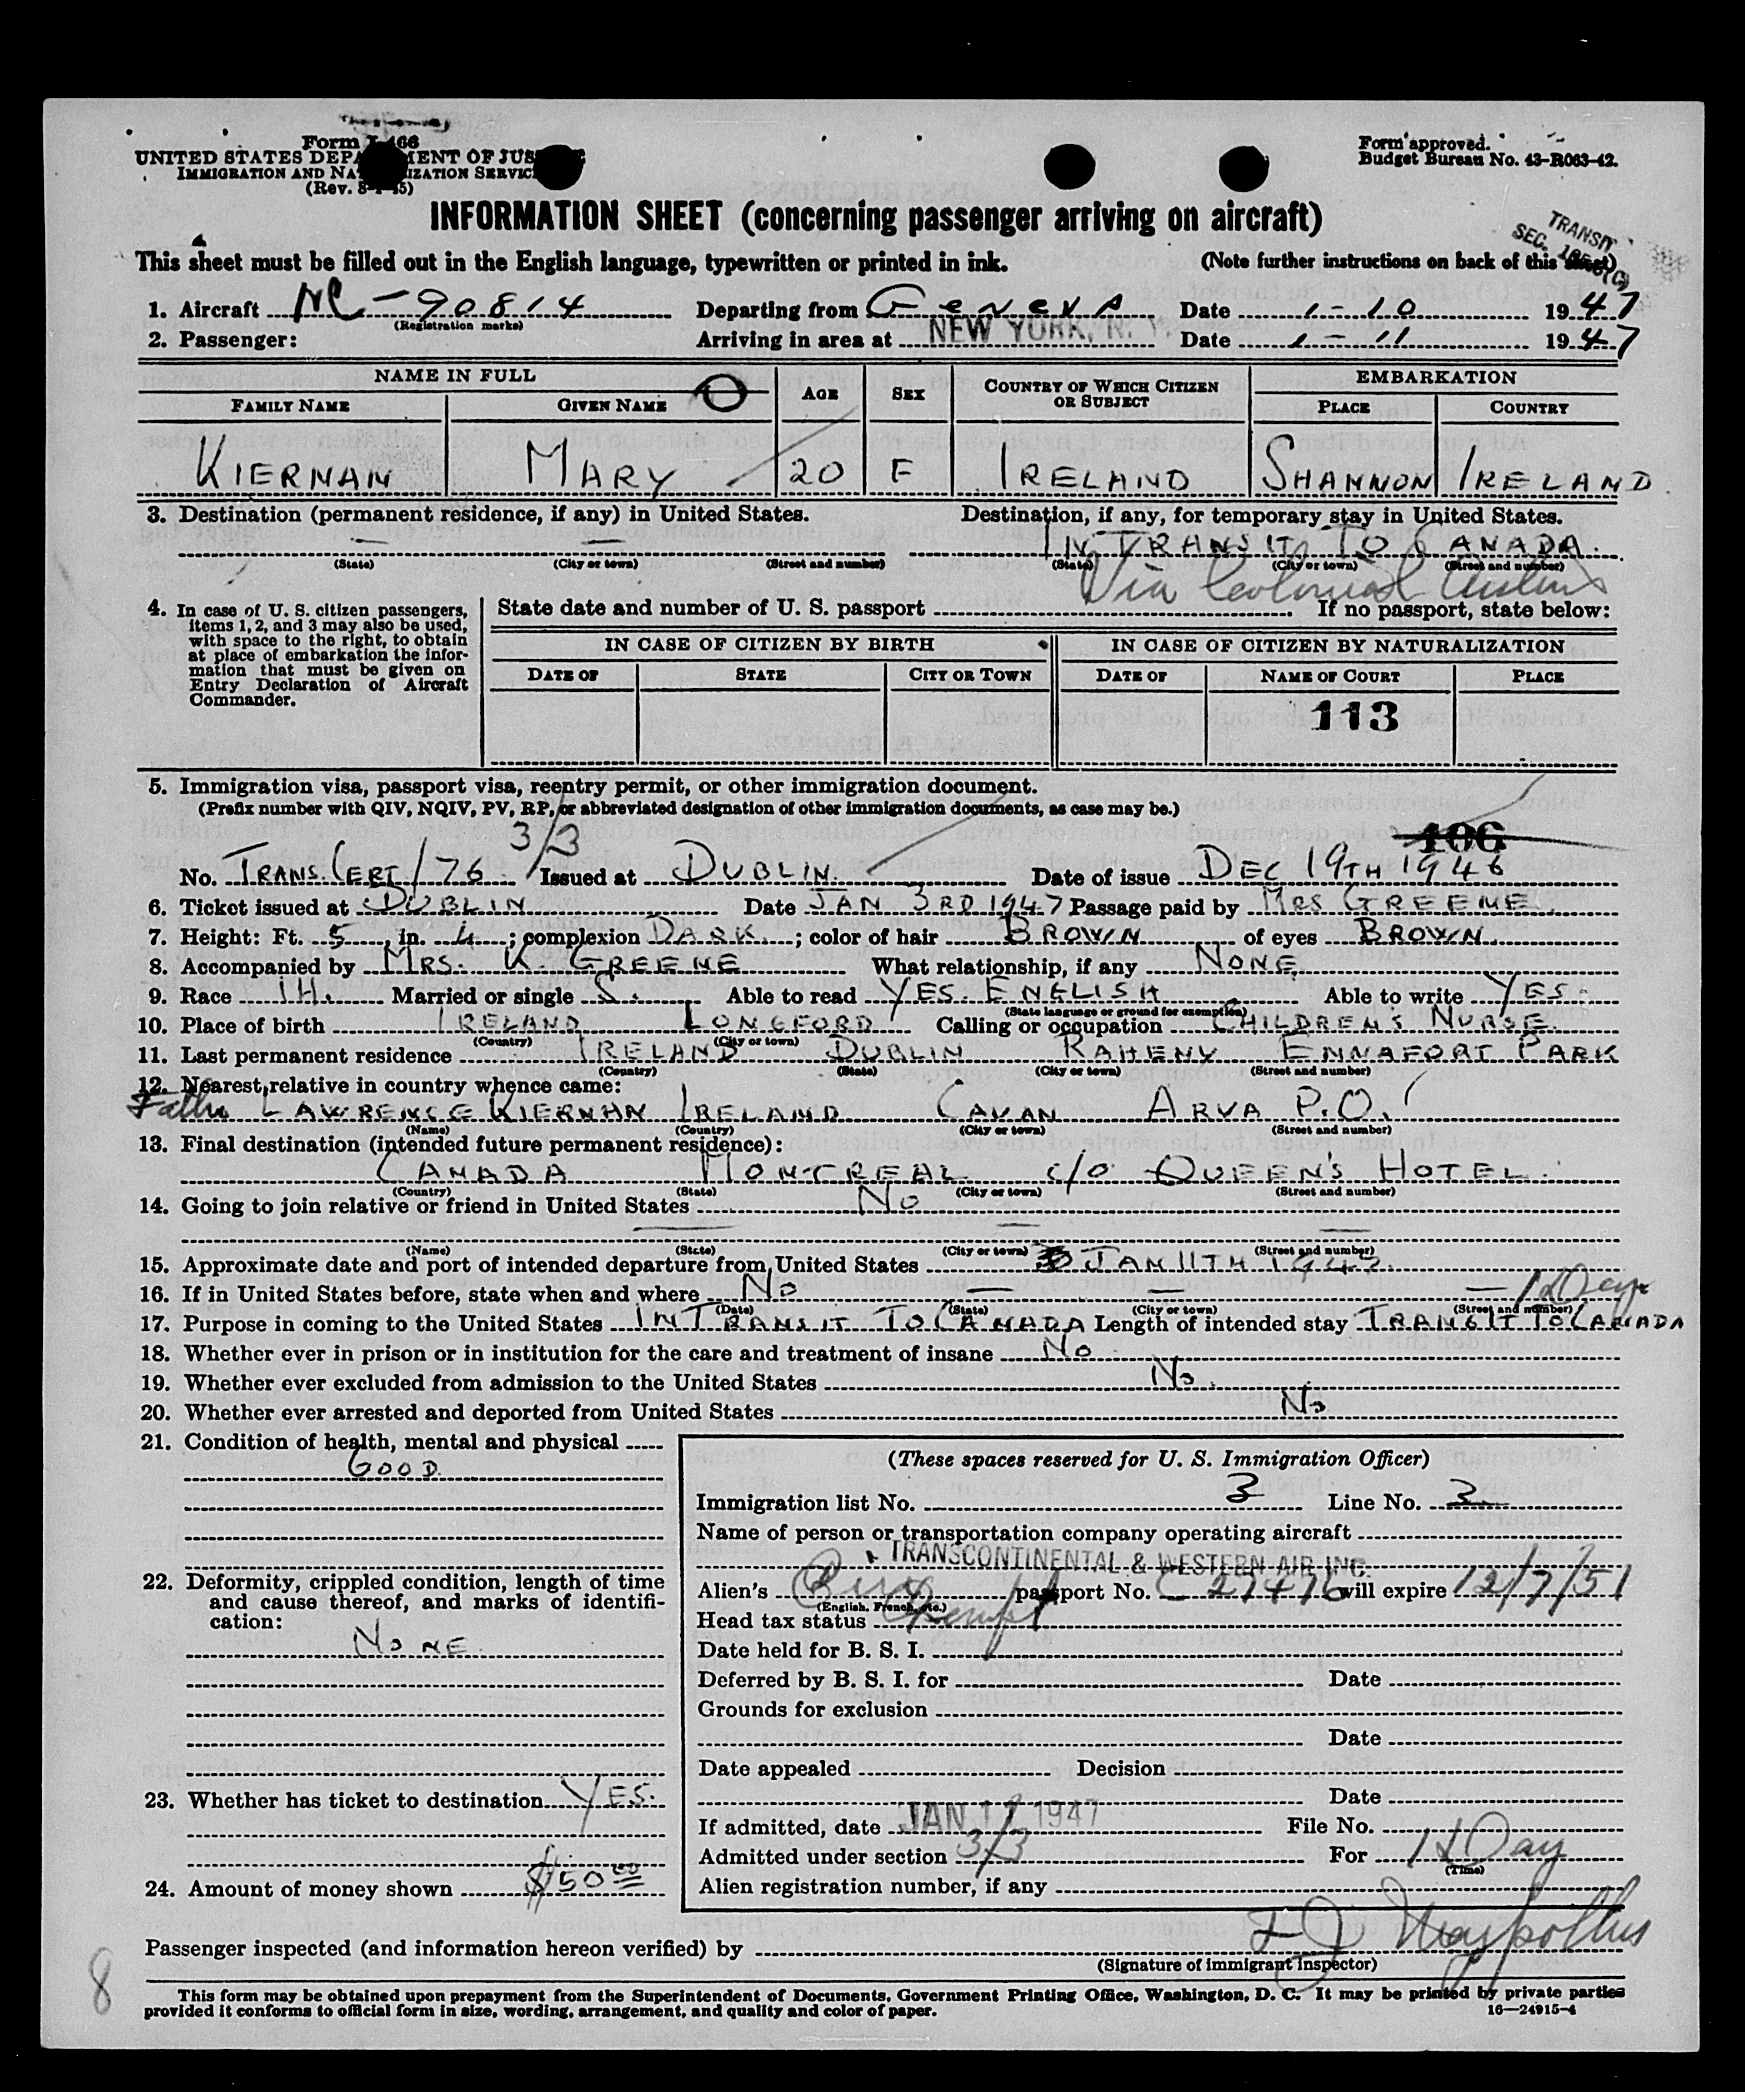 Form I-466
UNITED STATES DEPARTMENT OF JUSTICE
IMMIGRATION AND NATURALIZATION SERVICE
(Rev. 8-1-45)
Form approved.
Budget Bureau No. 43-R063-42.
INFORMATION SHEET (concerning passenger arriving on aircraft)
TRANSIT
SEC.
This sheet must be filled out in the English language, typewritten or printed in ink. (Note further instructions on back of this sheet)
1. Aircraft NC-90814 Departing from GENEVA Date 1-10 1947
(Registration marks)
2. Passenger: Arriving in area at NEW YORK, N. Y. Date 1-11 1947
NAME IN FULL AGE SEX COUNTRY OF WHICH CITIZEN OR SUBJECT EMBARKATION
FAMILY NAME GIVEN NAME PLACE COUNTRY
KIERNAN MARY 20 F IRELAND SHANNON IRELAND
3. Destination (permanent residence, if any) in United States. Destination, if any, for temporary stay in United States.
— — IN TRANSIT TO CANADA.
(State) (City or town) (Street and number) (State) (City or town) (Street and number)
Via Colonial Airlines
4. In case of U. S. citizen passengers, items 1, 2, and 3 may also be used, with space to the right, to obtain at place of embarkation the information that must be given on Entry Declaration of Aircraft Commander.
State date and number of U. S. passport If no passport, state below:
IN CASE OF CITIZEN BY BIRTH IN CASE OF CITIZEN BY NATURALIZATION
DATE OF STATE CITY OR TOWN DATE OF NAME OF COURT PLACE
113
5. Immigration visa, passport visa, reentry permit, or other immigration document.
(Prefix number with QIV, NQIV, PV, RP, or abbreviated designation of other immigration documents, as case may be.)
3/3 106
No. TRANS. CERT/76 Issued at DUBLIN. Date of issue DEC 19TH 1946
6. Ticket issued at DUBLIN Date JAN 3RD 1947 Passage paid by MRS GREENE
7. Height: Ft. 5, in. 4; complexion DARK; color of hair BROWN of eyes BROWN.
8. Accompanied by MRS. K. GREENE What relationship, if any NONE
9. Race IH. Married or single S. Able to read YES. ENGLISH Able to write YES.
(State language or ground for exemption)
10. Place of birth IRELAND LONGFORD Calling or occupation CHILDREN'S NURSE
(Country) (City or town)
11. Last permanent residence IRELAND DUBLIN RAHENY ENNAFORT PARK
(Country) (State) (City or town) (Street and number)
12. Nearest relative in country whence came:
Father LAWRENCE KIERNAN IRELAND CAVAN ARVA P.O.
(Name) (Country) (City or town) (Street and number)
13. Final destination (intended future permanent residence):
CANADA MONTREAL c/o QUEEN'S HOTEL.
(Country) (State) (City or town) (Street and number)
14. Going to join relative or friend in United States NO
— — —
(Name) (State) (City or town) (Street and number)
15. Approximate date and port of intended departure from United States JAN 11TH 1947
16. If in United States before, state when and where NO — — — 1 Day
(Date) (State) (City or town) (Street and number)
17. Purpose in coming to the United States IN TRANSIT TO CANADA Length of intended stay TRANSIT TO CANADA
18. Whether ever in prison or in institution for the care and treatment of insane No
19. Whether ever excluded from admission to the United States No.
20. Whether ever arrested and deported from United States No
21. Condition of health, mental and physical
GOOD
22. Deformity, crippled condition, length of time and cause thereof, and marks of identification:
NONE
23. Whether has ticket to destination YES.
24. Amount of money shown $50 00
(These spaces reserved for U. S. Immigration Officer)
Immigration list No. 3 Line No. 3
Name of person or transportation company operating aircraft
TRANSCONTINENTAL & WESTERN AIR INC.
Alien's passport No. C 27476 will expire 12/7/51
(English, French, etc.)
Head tax status Exempt
Date held for B. S. I.
Deferred by B. S. I. for Date
Grounds for exclusion
Date
Date appealed Decision
Date
If admitted, date JAN 11 1947 File No.
Admitted under section 3/3 For 1 Day
(Time)
Alien registration number, if any
Passenger inspected (and information hereon verified) by
(Signature of immigrant inspector)
8
This form may be obtained upon prepayment from the Superintendent of Documents, Government Printing Office, Washington, D. C. It may be printed by private parties
provided it conforms to official form in size, wording, arrangement, and quality and color of paper. 16—24915-4